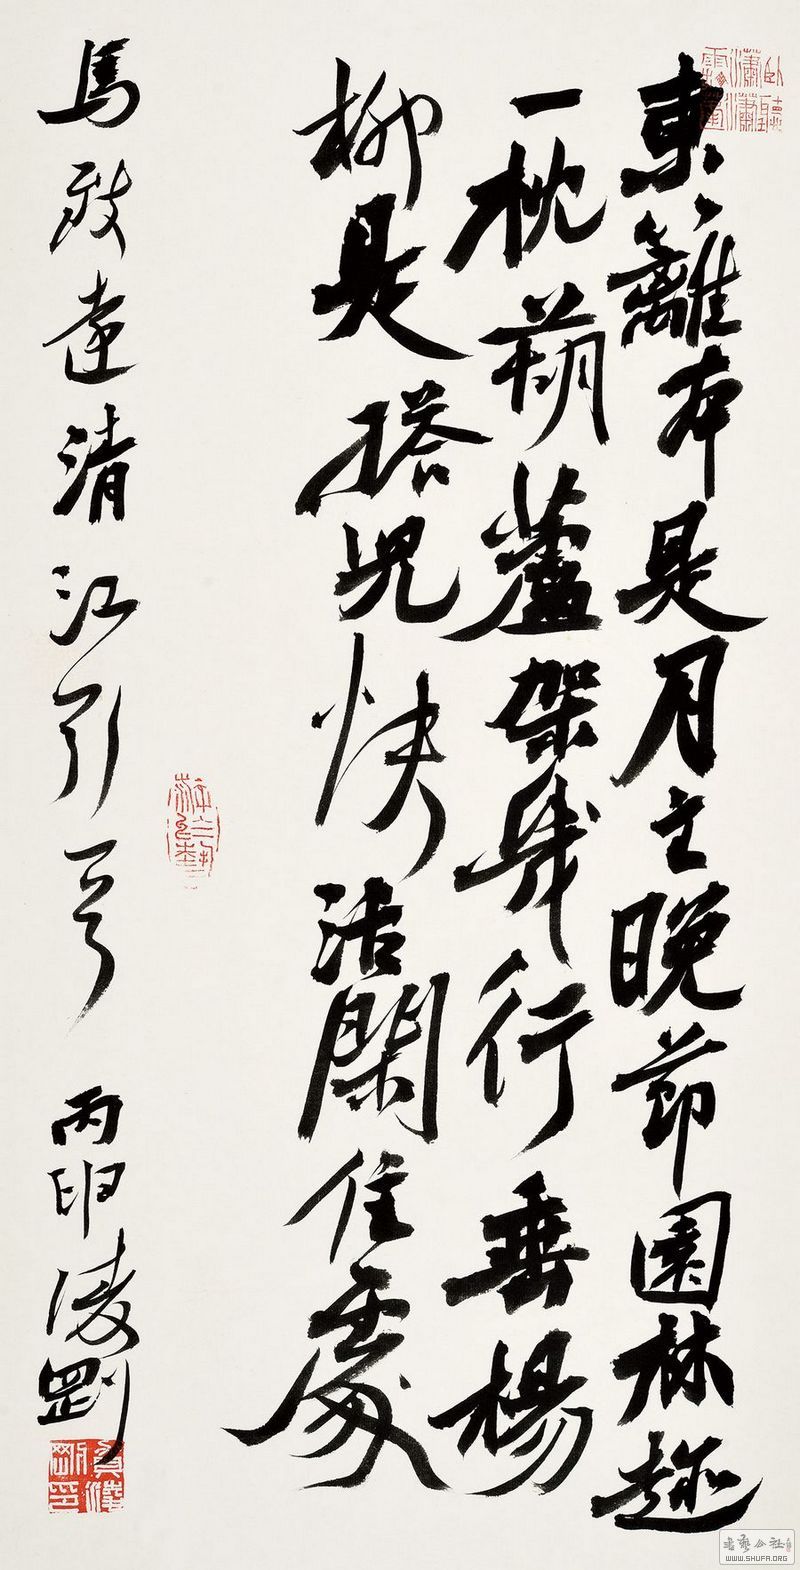 東籬本是月主晚節園林趣
一枕葫蘆架幾行垂楊
柳是搭兒快活閑住處
馬致遠清江引
丙申凌剛
卧聽瀟瀟
书艺公社
www.SHUFA.ORG